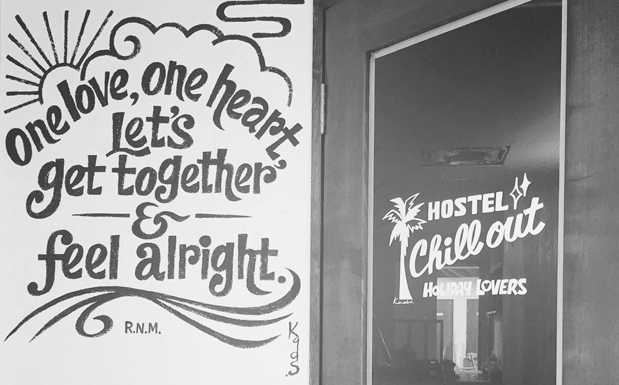 One love, one heart,
Let's
get together
&
feel alright.
R.N.M.
HOSTEL
Chill out
HOLIDAY LOVERS